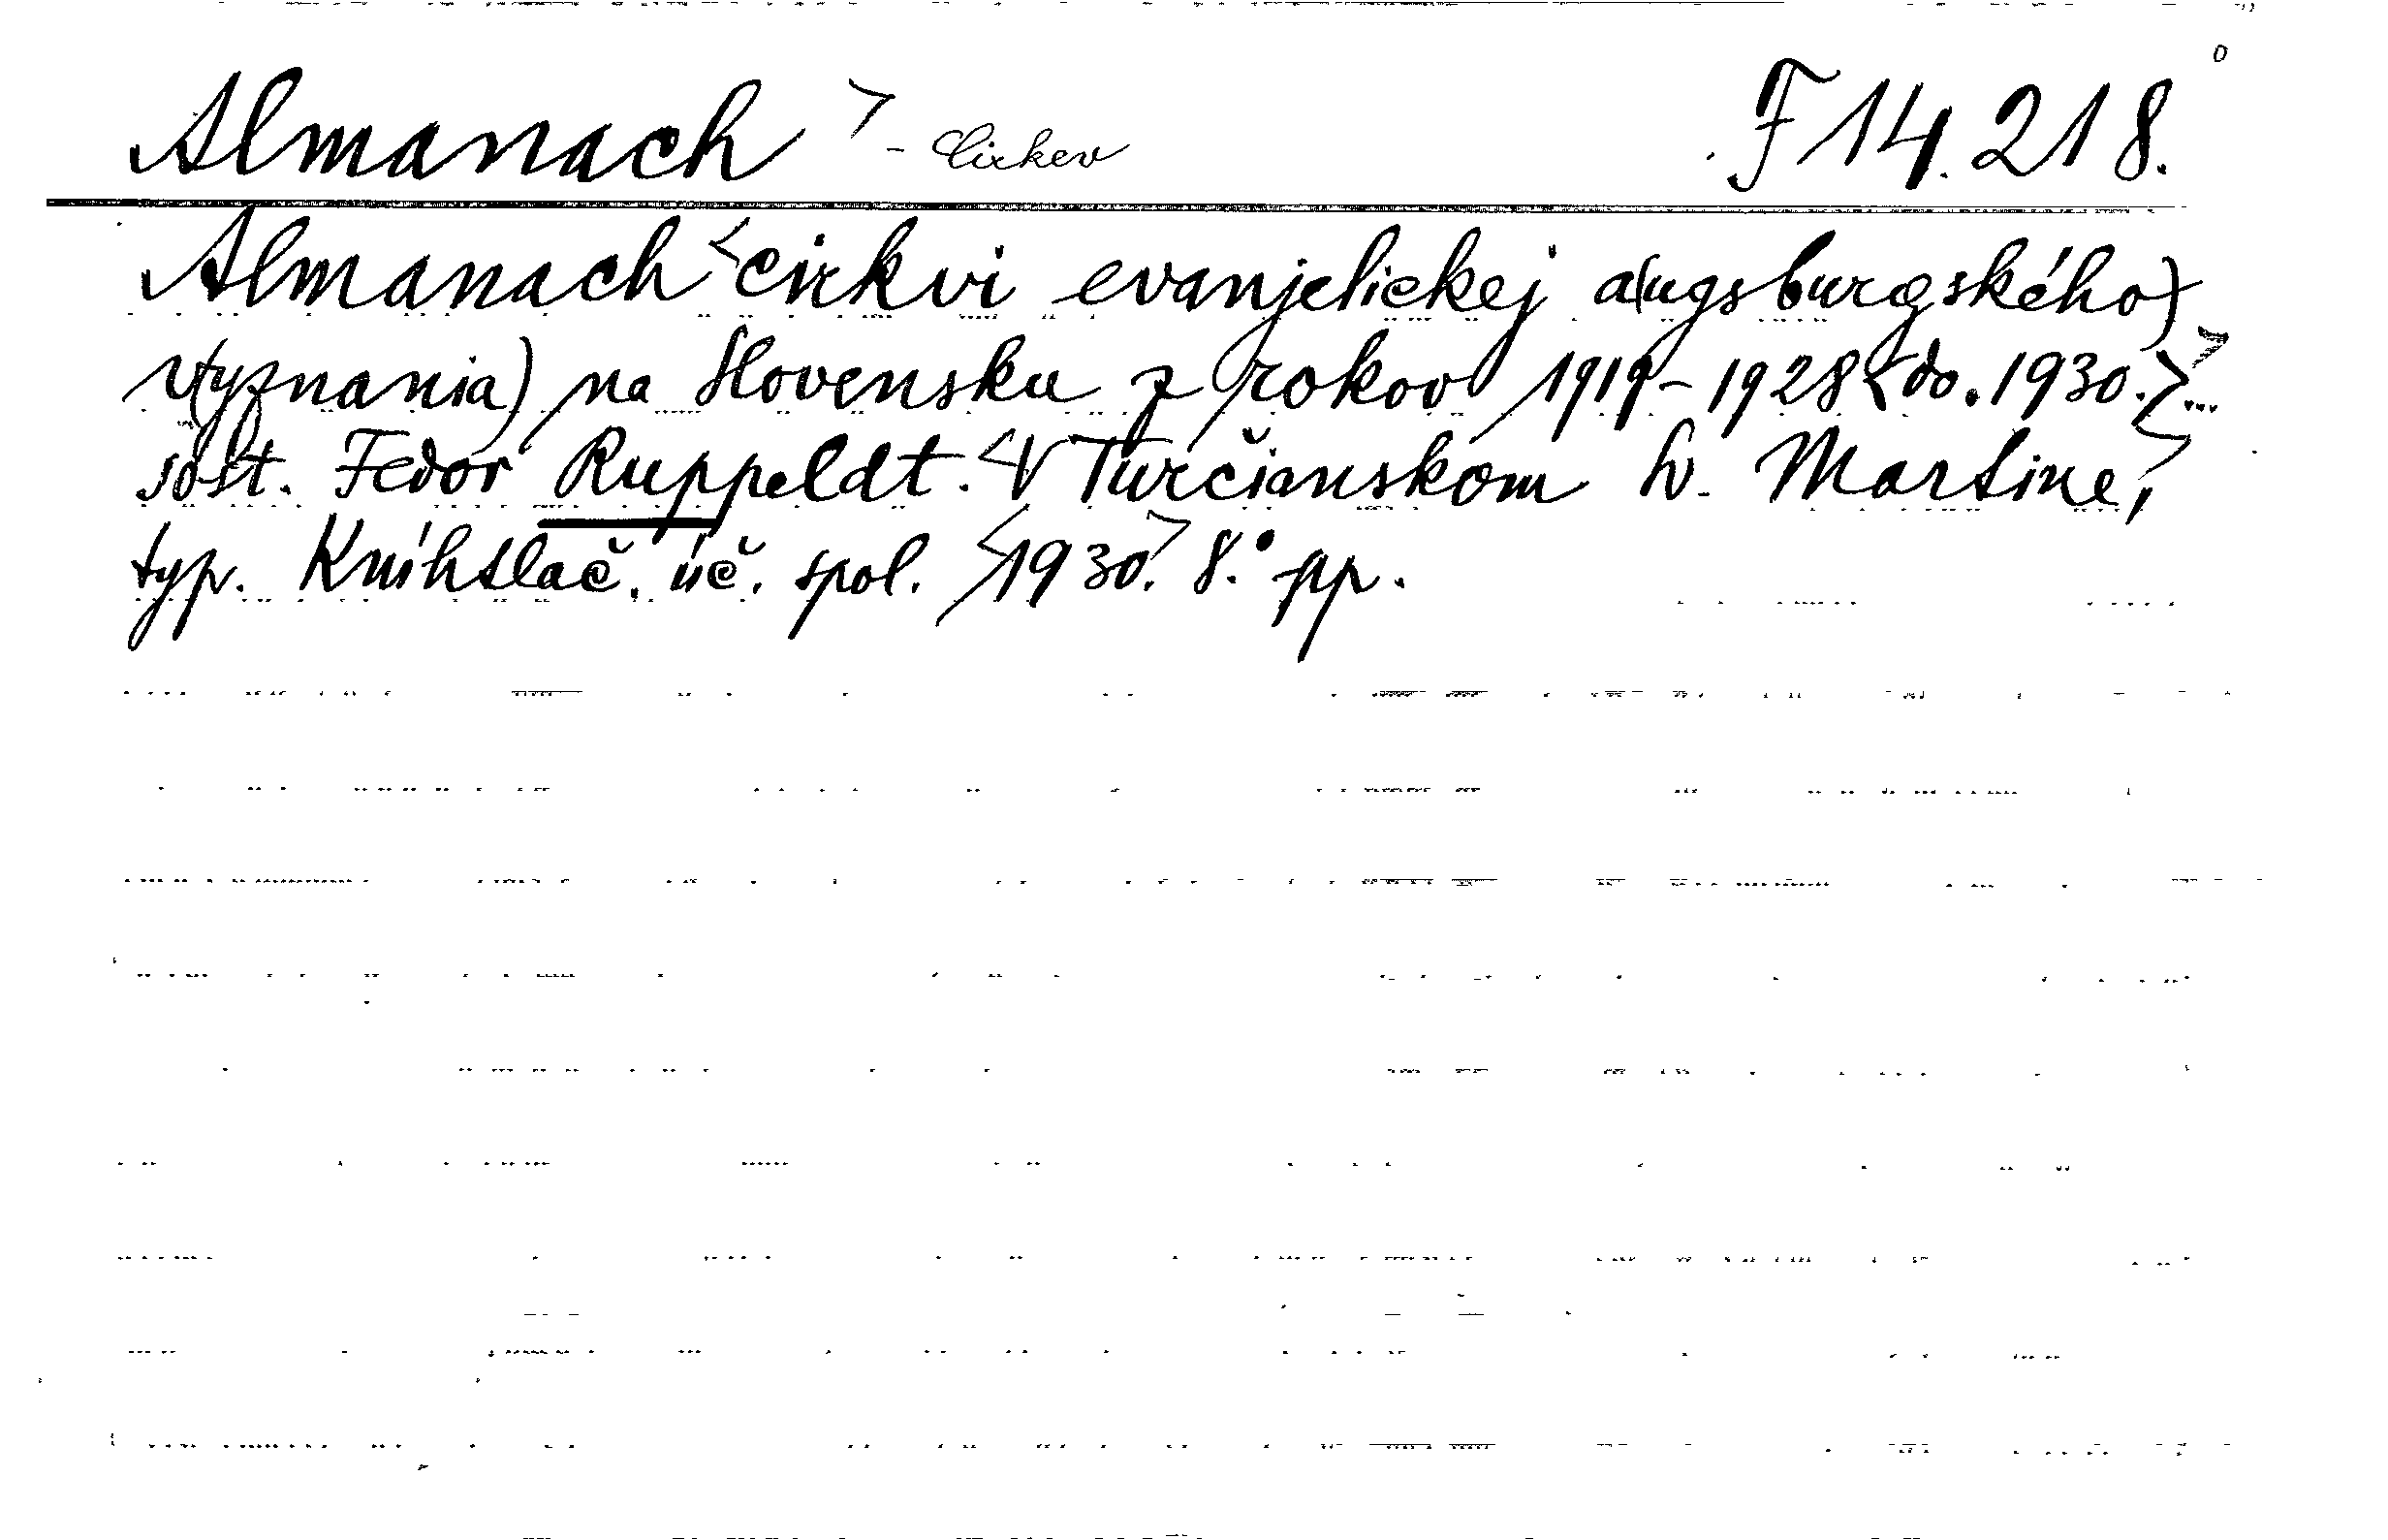 Almanach > - Cirkev F 14.218.
Almanach < cirkvi evanjelickej a(ugsburgského)
v(yznania) na Slovensku z rokov 1919-1928 < do. 1930. >
sost. Fedor Ruppeldt. < V Turčianskom Sv. Martine, >
typ. Kníhtlač. úč. spol. < 1930. > 8.° pp.